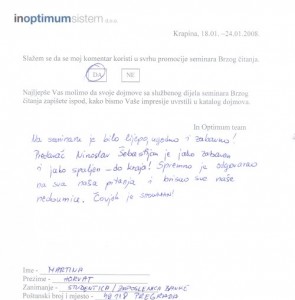 inoptimumsistem d.o.o.
Krapina, 18.01. –24.01.2008
Slažem se da se moj komentar koristi u svrhu promocije seminara Brzog čitanja
DA NE
Najljepše Vas molimo da svoje dojmove sa službenog dijela seminara Brzog
čitanja zapišete ispod, kako bismo Vaše impresije uvrstili u katalog dojmova.
In Optimum team
Na seminaru je bilo lijepo, ugodno i zabavno!
Predavač Ninoslav Šebastijan je jako zabavan
i jako spaljen - do kraja! Spremno je odgovarao
na sva naša pitanja i brisao sve naše
nedoumice. Čovjek je
Ime - MARTINA
Prezime - HORVAT
Zanimanje - STUDENTICA / ZAPOSLENICA BANKE
Poštanski broj i mjesto - 49218 PREGRADA